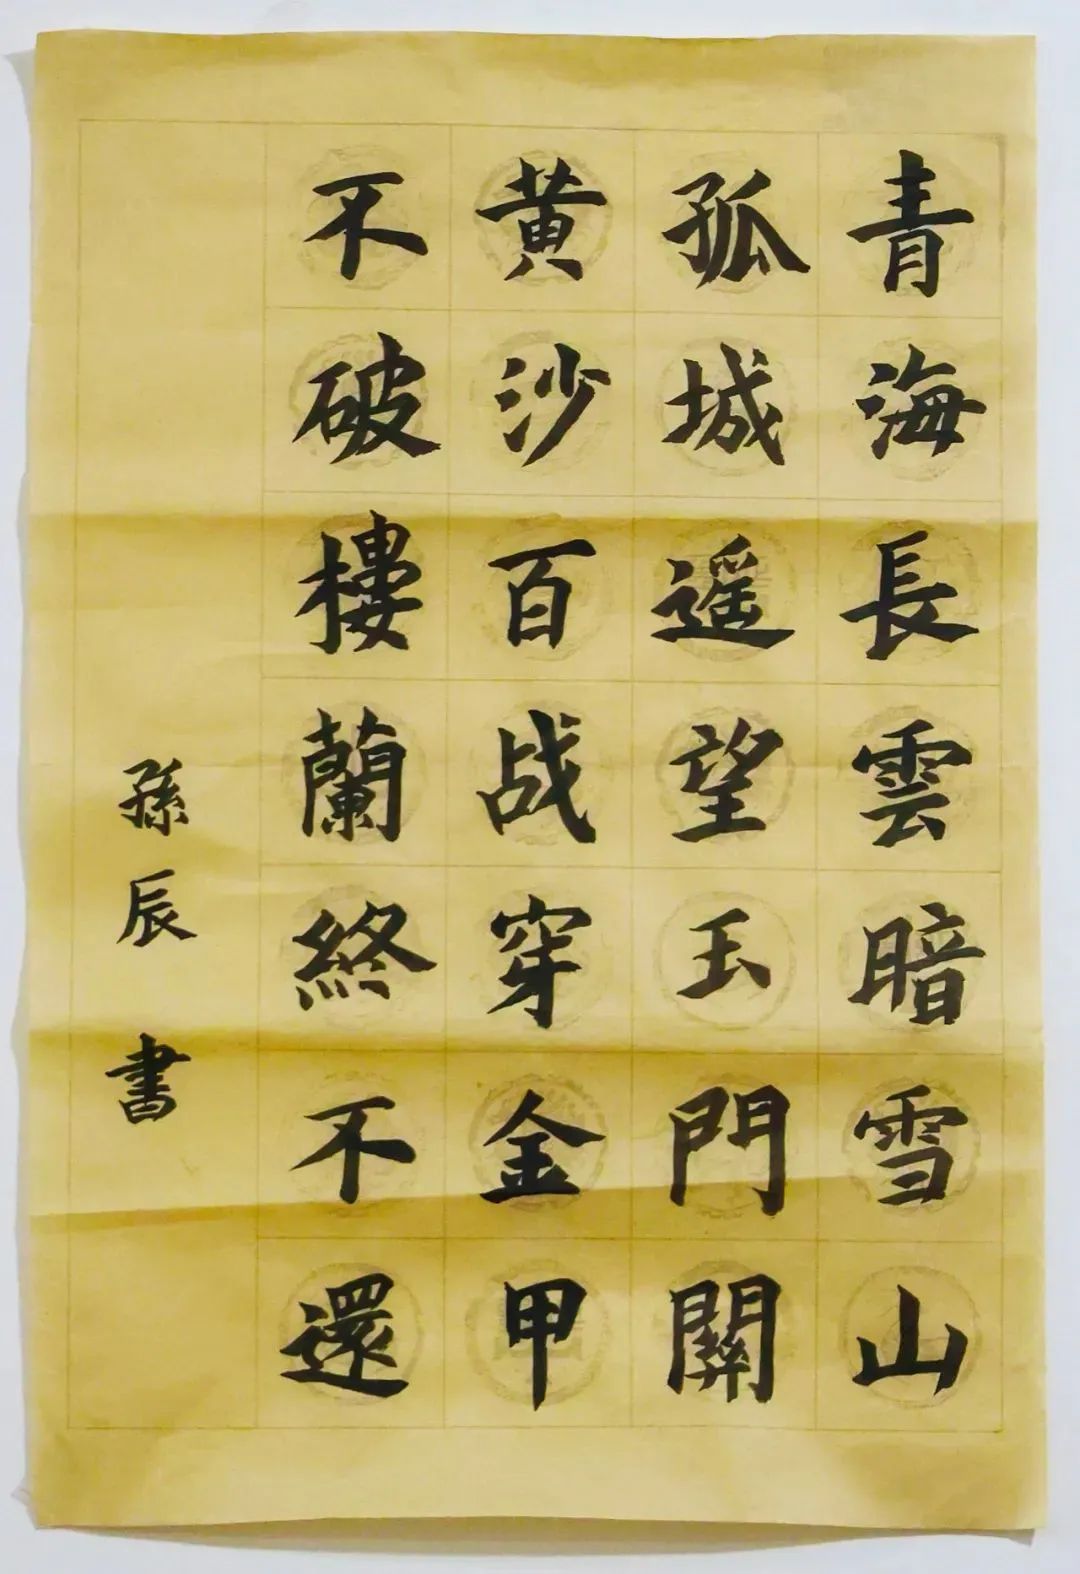 青海長雲暗雪山
孤城遥望玉門關
黄沙百战穿金甲
不破樓蘭終不還
孫辰書